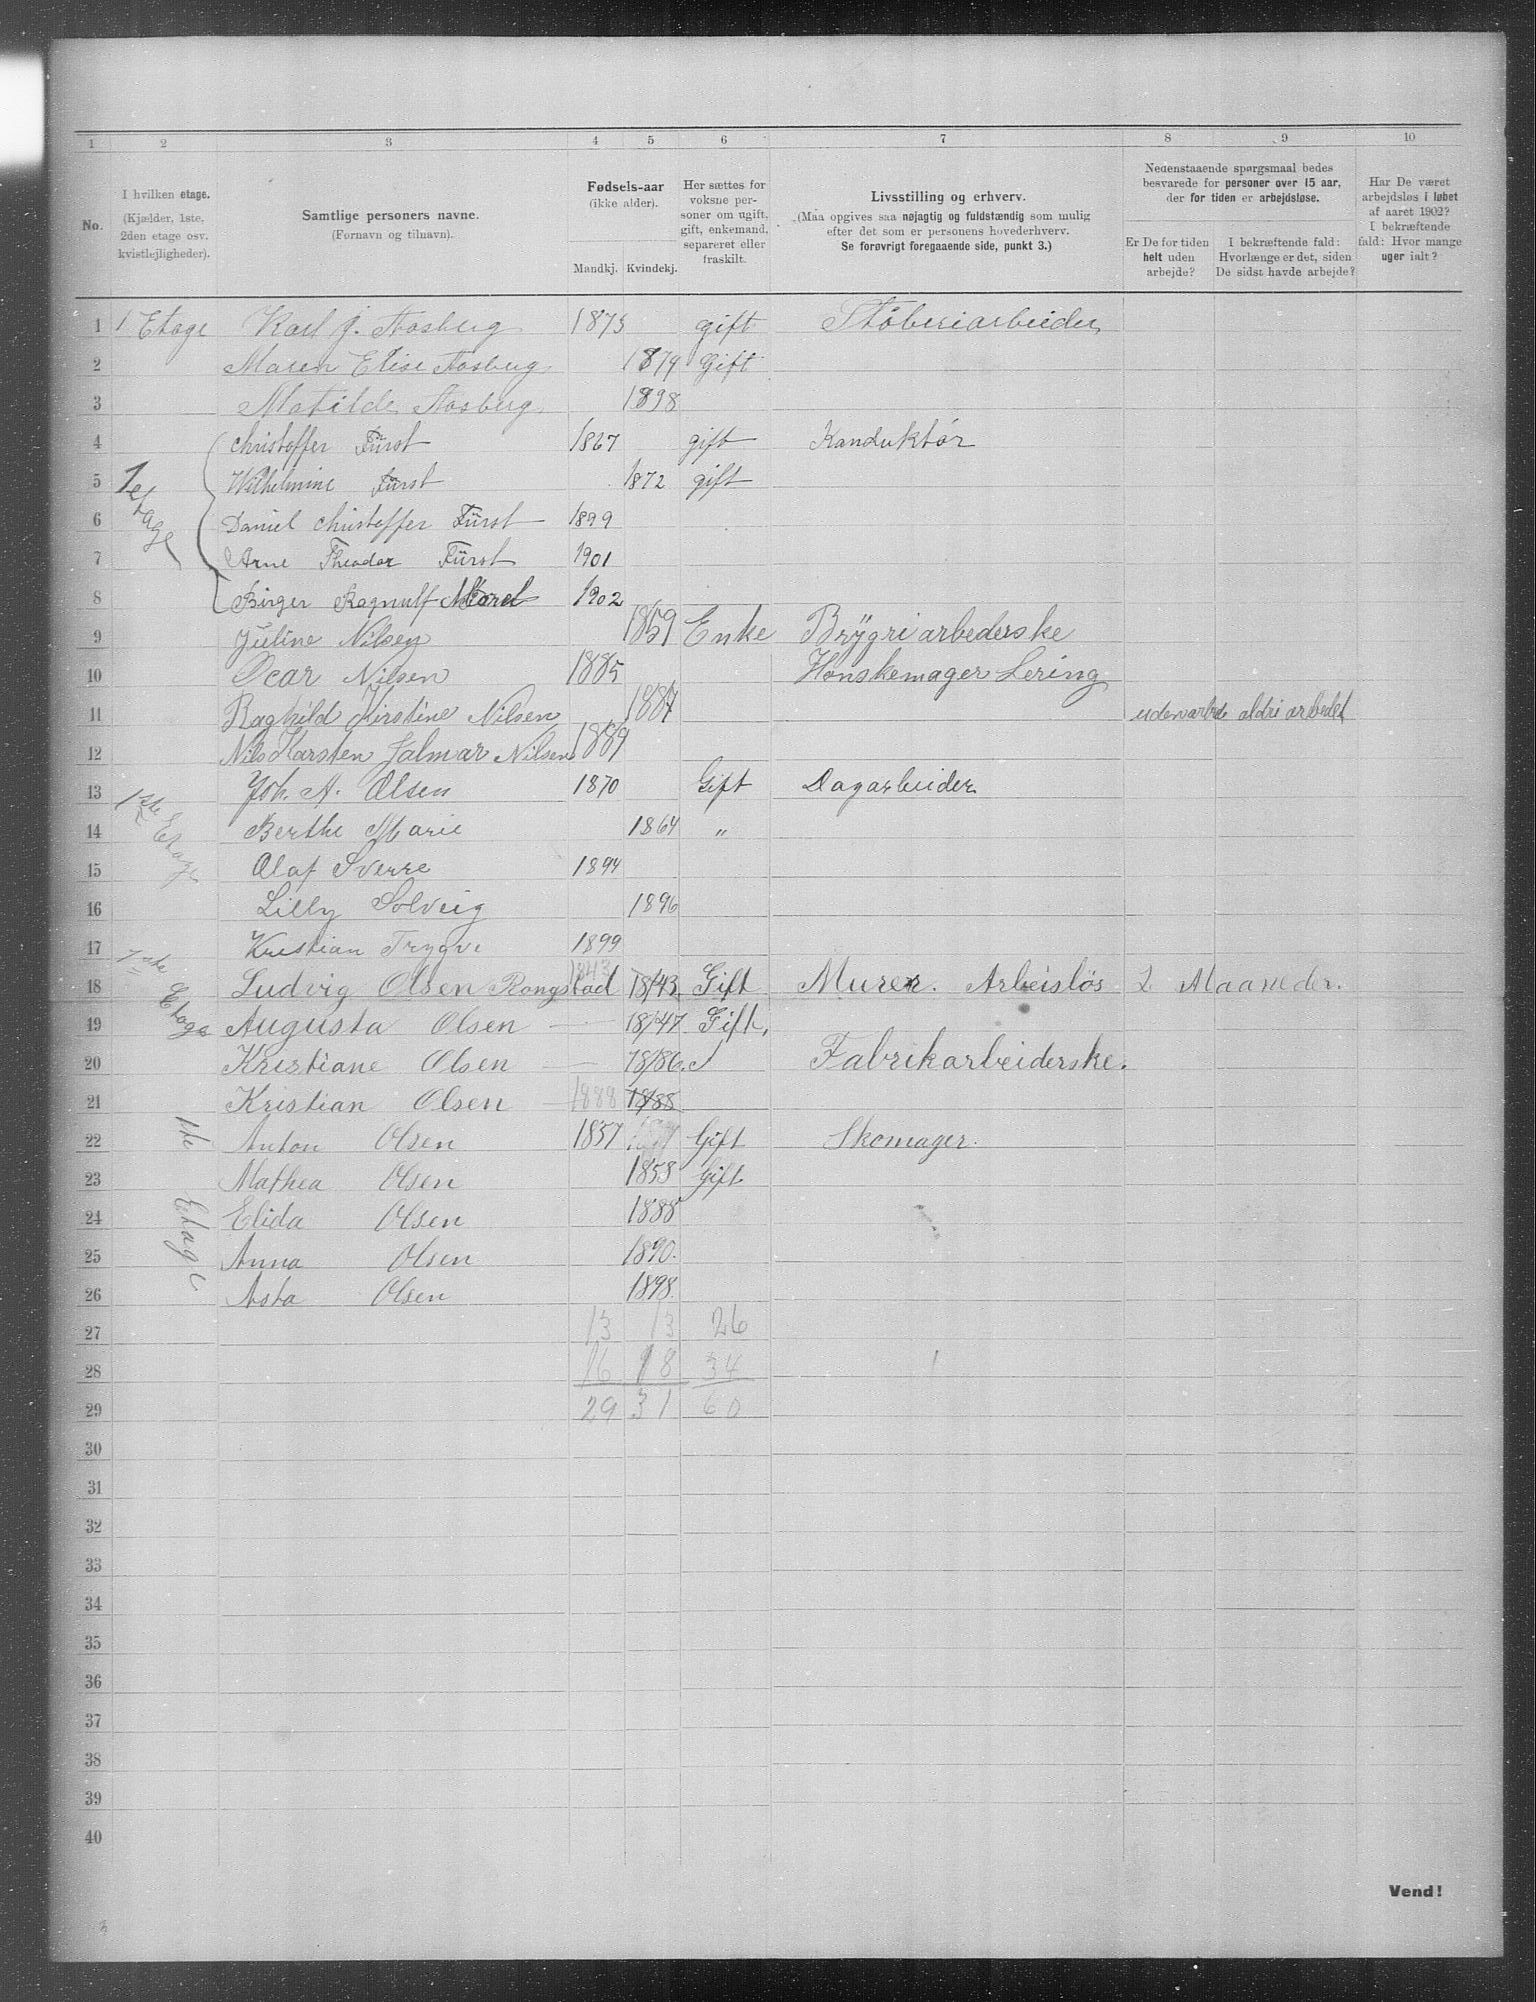 1 2 3 4 5 6 7 8 9 10
No.
I hvilken etage.
(Kjælder, 1ste,
2den etage osv.
kvistlejligheder).
Samtlige personers navne.
(Fornavn og tilnavn).
Fødsels-aar
(ikke alder).
Mandkj. Kvindekj.
Her sættes for
voksne per-
soner om ugift,
gift, enkemand,
separeret eller
fraskilt.
Livsstilling og erhverv.
(Maa opgives saa nøjagtig og fuldstændig som mulig
efter det som er personens hovederhverv.
Se forøvrigt foregaaende side, punkt 3.)
Nedenstaaende spørgsmaal bedes
besvarede for personer over 15 aar,
der for tiden er arbejdsløse.
Er De for tiden
helt uden
arbejde?
I bekræftende fald:
Hvorlænge er det, siden
De sidst havde arbejde?
Har De været
arbejdsløs i løbet
af aaret 1902?
I bekræftende
fald: Hvor mange
uger ialt?
1 1 Etage Karl J. Aasberg 1873 gift Støberiarbeider
2 Maren Elise Aasberg 1879 Gift
3 Matilde Aasberg 1898
4 Christoffer Fürst 1867 gift Kanduktør
5 1 etage Wilhelmine Fürst 1872 gift
6 Daniel Christoffer Fürst 1899
7 Arne Theodor Fürst 1901
8 Birger Ragnulf 1902
9 Juline Nilsen 1859 Enke Brÿgri arbederske
10 Ocar Nilsen 1885 Hanskemager Lering
11 Raghild Kirstine Nilsen 1887 uden arbede aldri arbedet
12 Nils Karsten Jalmar Nilsen 1889
13 1ste Etage Joh. A. Olsen 1870 Gift Dagarbeider
14 Berthe Marie 1864 „
15 Olaf Sverre 1894
16 Lilly Solveig 1896
17 Kristian Trygve 1899
18 1ste Etage Ludvig Olsen Rongstad 1843 18/43 Gift Murer. Arbeisløs 2 Maaneder.
19 Augusta Olsen — 18/47 Gift,
20 Kristiane Olsen — 18/86. Fabrikarbeiderske.
21 Kristian Olsen — 1888 18/88
22 1ste Etage Anton Olsen 1857 Gift Skomager.
23 Mathea Olsen 1858 Gift
24 Elida Olsen 1888
25 Anna Olsen 1890.
26 Asta Olsen 1898.
27 13 13 26
28 16 18 34
29 29 31 60
30
31
32
33
34
35
36
37
38
39
40
Vend!